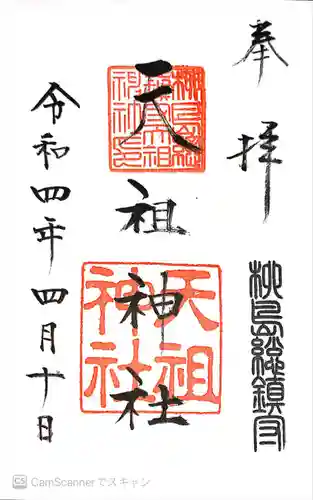 奉拝
柳島総鎮守
天祖神社
天祖神社
令和四年四月十日
CS CamScannerでスキャン